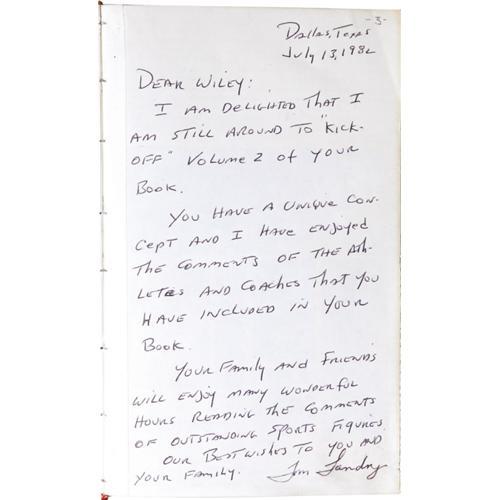 -3-
Dallas, Texas
July 13, 1982
DEAR WILEY:
I AM DELIGHTED THAT I
AM STILL AROUND TO "KICK-
OFF" VOLUME 2 OF YOUR
BOOK.
YOU HAVE A UNIQUE CON-
CEPT AND I HAVE ENJOYED
THE COMMENTS OF THE Ath-
LETES AND COACHES THAT YOU
HAVE INCLUDED IN YOUR
BOOK.
YOUR FAMILY AND FRIENDS
WILL ENJOY MANY WONDERFUL
HOURS READING THE COMMENTS
OF OUTSTANDING SPORTS FIGURES.
OUR BEST WISHES TO YOU AND
YOUR FAMILY. Tom Landry